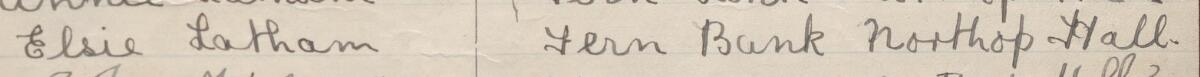 Elsie Latham Fern Bank Northop Hall.